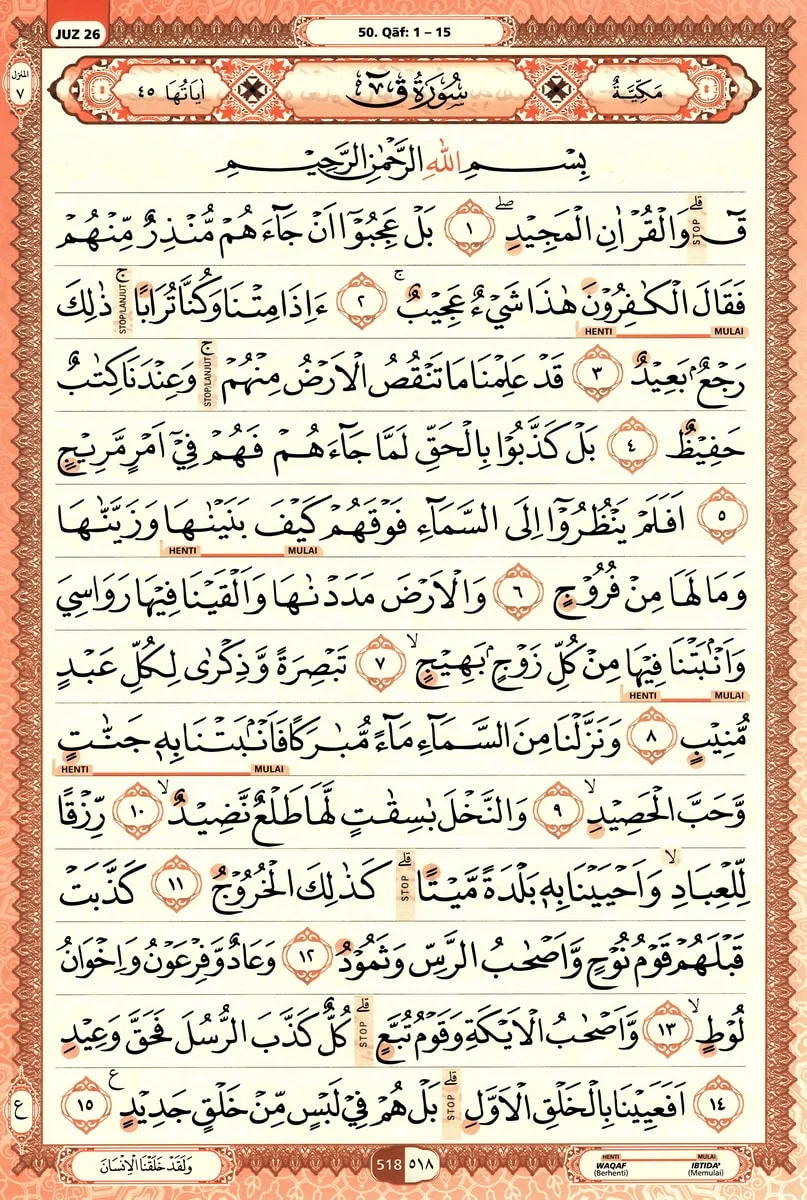 JUZ 26
50. Qāf: 1 – 15
المنزل ٧
مَكِّيَّةٌ
سُوْرَةُ قٓ
اٰيَاتُهَا ٤٥
بِسْمِ اللّٰهِ الرَّحْمٰنِ الرَّحِيْمِ
قٓ ۗ STOP وَالْقُرْاٰنِ الْمَجِيْدِ ۖ ١ بَلْ عَجِبُوْٓا اَنْ جَاۤءَهُمْ مُّنْذِرٌ مِّنْهُمْ
فَقَالَ الْكٰفِرُوْنَ هٰذَا شَيْءٌ عَجِيْبٌ ۚ ٢ ءَاِذَا مِتْنَا وَكُنَّا تُرَابًا ۚ STOP/LANJUT ذٰلِكَ
MULAI HENTI
رَجْعٌۢ بَعِيْدٌ ٣ قَدْ عَلِمْنَا مَا تَنْقُصُ الْاَرْضُ مِنْهُمْ ۚ STOP/LANJUT وَعِنْدَنَا كِتٰبٌ
حَفِيْظٌ ٤ بَلْ كَذَّبُوْا بِالْحَقِّ لَمَّا جَاۤءَهُمْ فَهُمْ فِيْٓ اَمْرٍ مَّرِيْجٍ
٥ اَفَلَمْ يَنْظُرُوْٓا اِلَى السَّمَاۤءِ فَوْقَهُمْ كَيْفَ بَنَيْنٰهَا وَزَيَّنّٰهَا
MULAI HENTI
وَمَا لَهَا مِنْ فُرُوْجٍ ٦ وَالْاَرْضَ مَدَدْنٰهَا وَاَلْقَيْنَا فِيْهَا رَوَاسِيَ
وَاَنْۢبَتْنَا فِيْهَا مِنْ كُلِّ زَوْجٍۢ بَهِيْجٍ ۙ ٧ تَبْصِرَةً وَّذِكْرٰى لِكُلِّ عَبْدٍ
MULAI HENTI
مُّنِيْبٍ ٨ وَنَزَّلْنَا مِنَ السَّمَاۤءِ مَاۤءً مُّبٰرَكًا فَاَنْۢبَتْنَا بِهٖ جَنّٰتٍ
MULAI HENTI
وَّحَبَّ الْحَصِيْدِ ۙ ٩ وَالنَّخْلَ بٰسِقٰتٍ لَّهَا طَلْعٌ نَّضِيْدٌ ۙ ١٠ رِّزْقًا
لِّلْعِبَادِ ۙ وَاَحْيَيْنَا بِهٖ بَلْدَةً مَّيْتًا ۗ STOP كَذٰلِكَ الْخُرُوْجُ ١١ كَذَّبَتْ
قَبْلَهُمْ قَوْمُ نُوْحٍ وَّاَصْحٰبُ الرَّسِّ وَثَمُوْدُ ١٢ وَعَادٌ وَّفِرْعَوْنُ وَاِخْوَانُ
لُوْطٍ ۙ ١٣ وَّاَصْحٰبُ الْاَيْكَةِ وَقَوْمُ تُبَّعٍ ۗ STOP كُلٌّ كَذَّبَ الرُّسُلَ فَحَقَّ وَعِيْدِ
١٤ اَفَعَيِيْنَا بِالْخَلْقِ الْاَوَّلِ ۗ STOP بَلْ هُمْ فِيْ لَبْسٍ مِّنْ خَلْقٍ جَدِيْدٍ ع ١٥
ع
وَلَقَدْ خَلَقْنَا الْاِنْسَانَ
518 ٥١٨
HENTI MULAI
WAQAF IBTIDA'
(Berhenti) (Memulai)